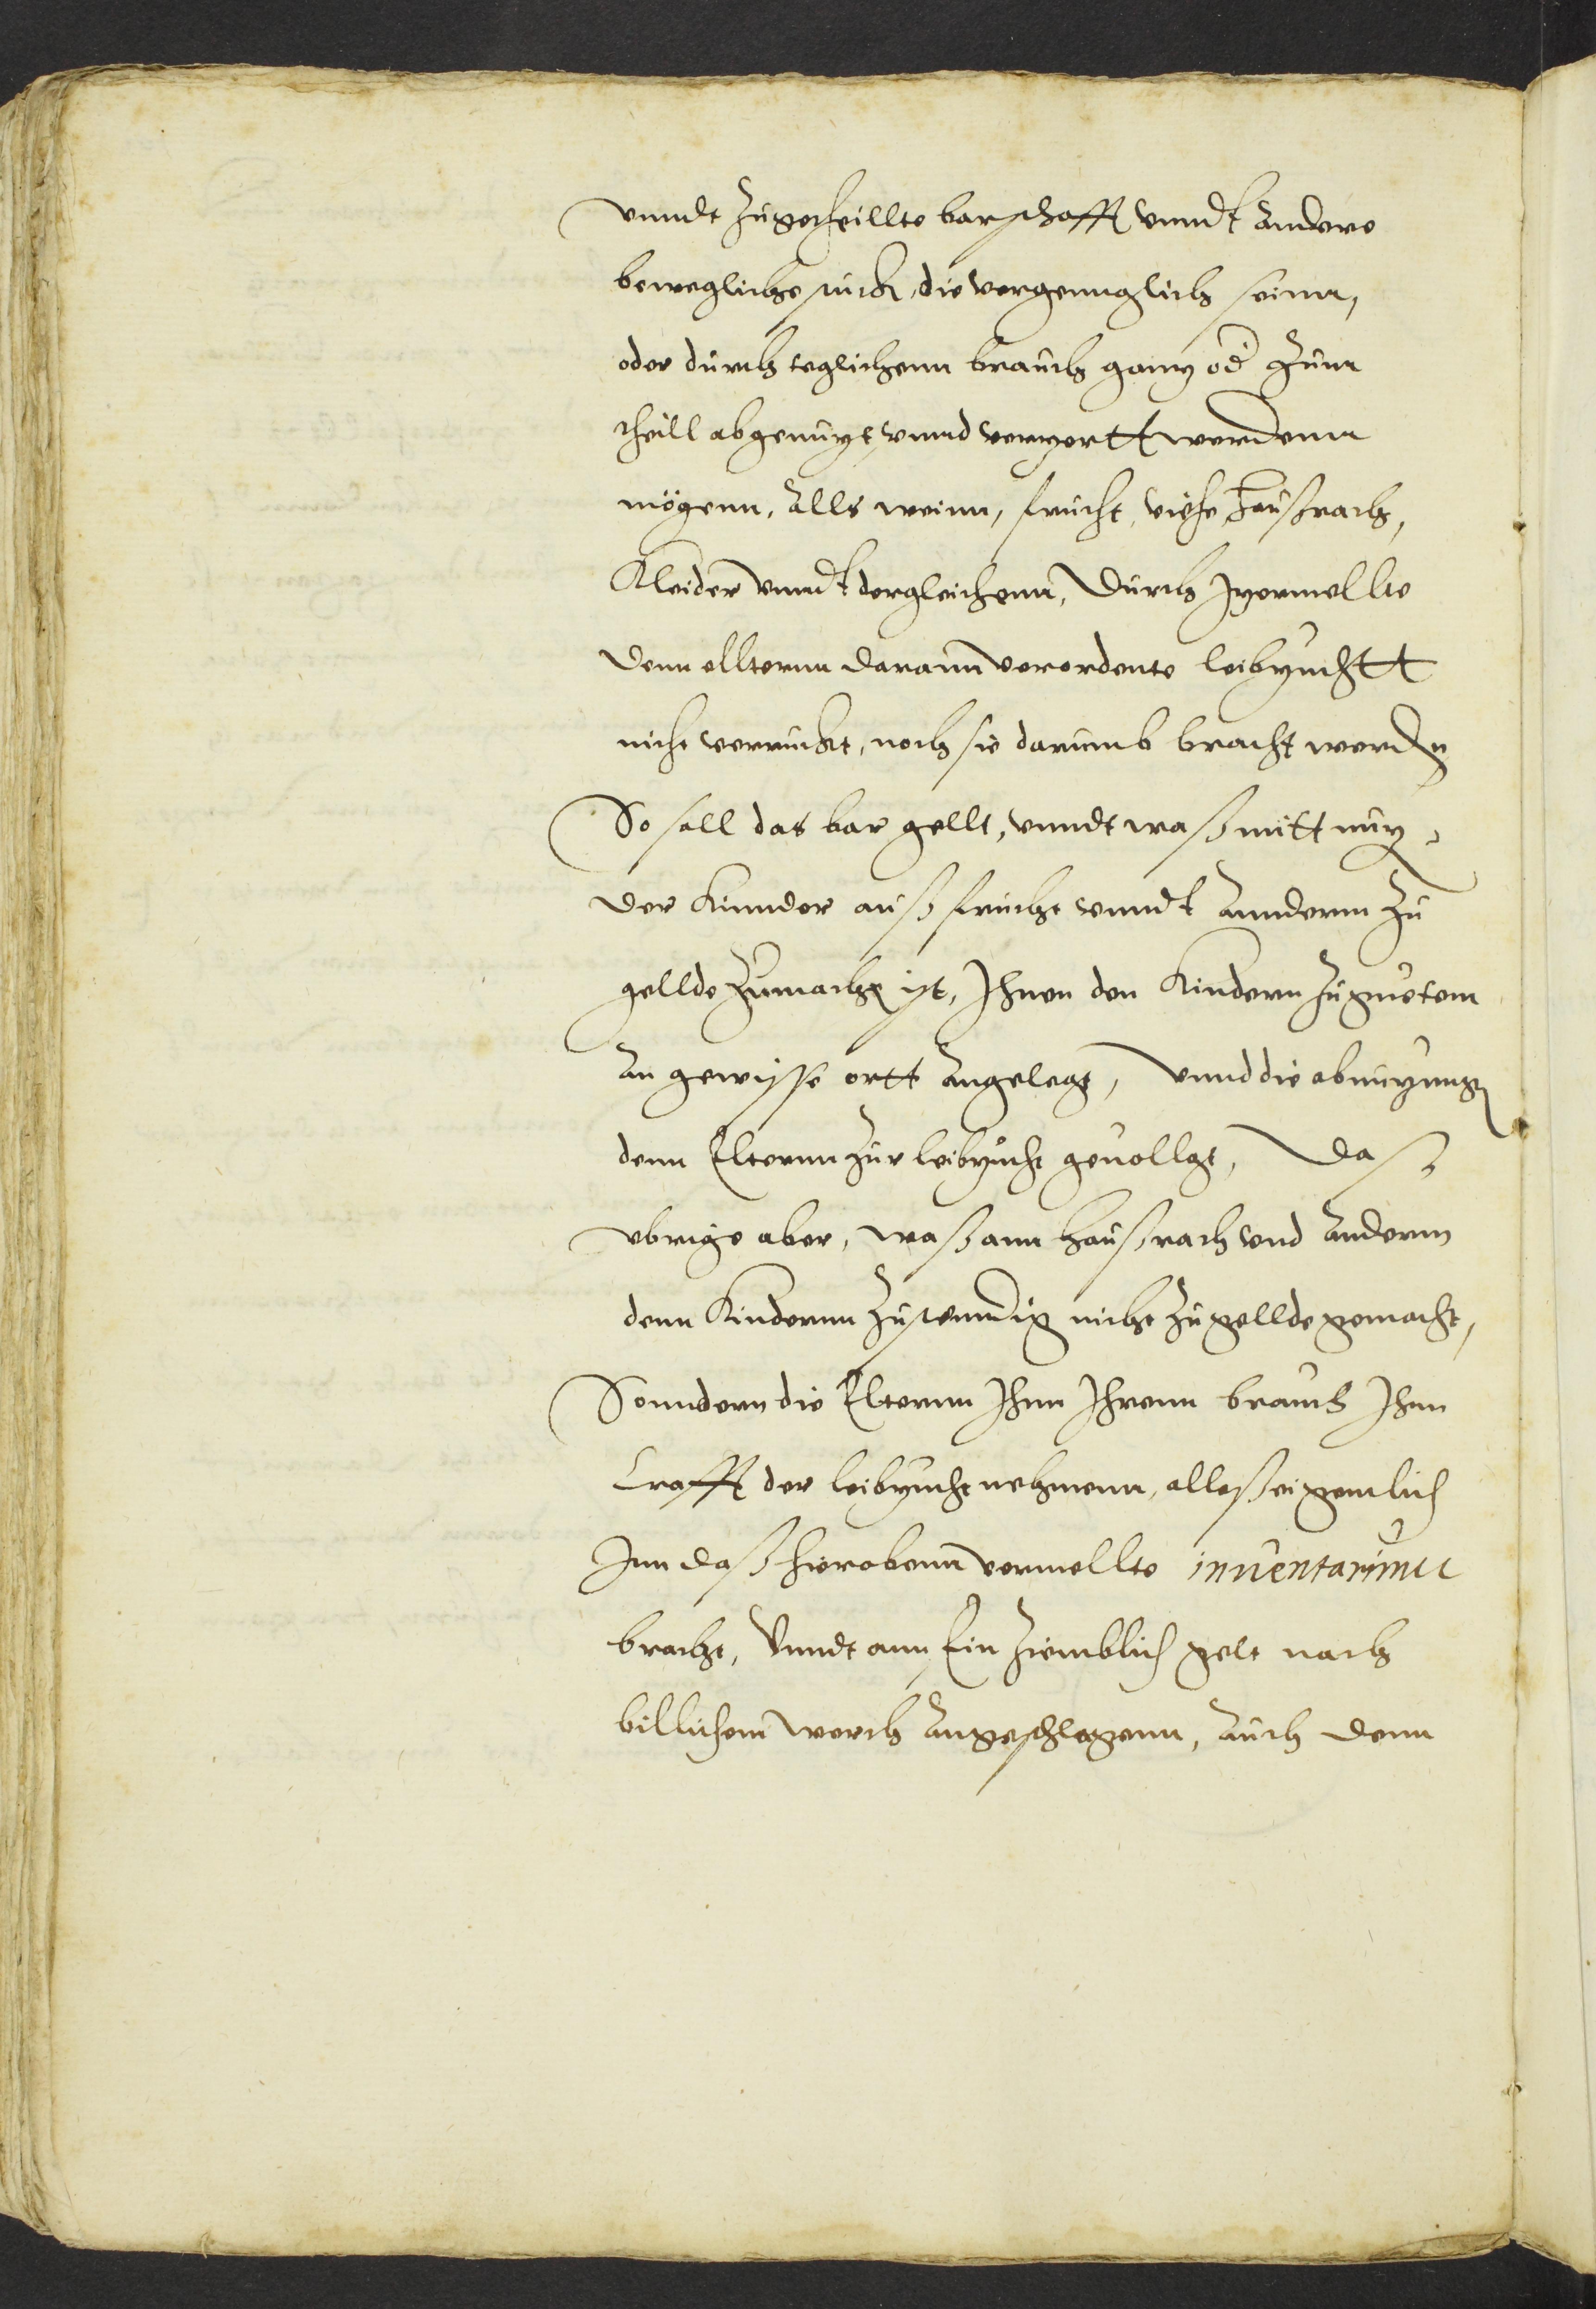 vnndt zugetheillte barschafft vnndt andere
bewegliche stuck, die vergennglich seinn,
oder durch teglichenn brauch gantz od zum
theill abgenutzt, vnnd verzertt werdenn
mögenn, alls weinn, frucht, viehe, haußrath,
Kleider vnndt dergleichenn, durch Itzermellte
denn ellternn darann verordente leibzuchtt
nicht verruckt, noch sie darumb bracht werden
So soll das bar gellt, vnndt waß mitt nutz
der Kinnder auß frucht vnndt annderm zu
gellde zumachen ist, Ihnen den Kindern zu guetem
an gewisse ortt angelegt, vnnd die abnutzung
denn Elternn zur leibzucht geuollgt, Daß
vbrige aber, waß ann haußrath vnd anderm
denn Kindernn zustenndig nicht zu gellde gemacht,
Sonndern die Elternn Ihnn Ihrenn brauch Ihnn
Crafft der leibzucht nehmenn, alleß eigentlich
Inn daß hierobenn vermellte inuentarium
bracht, Vnndt ann Ein ziemblich gelt nach
billichem werth angeschlagenn, auch denn